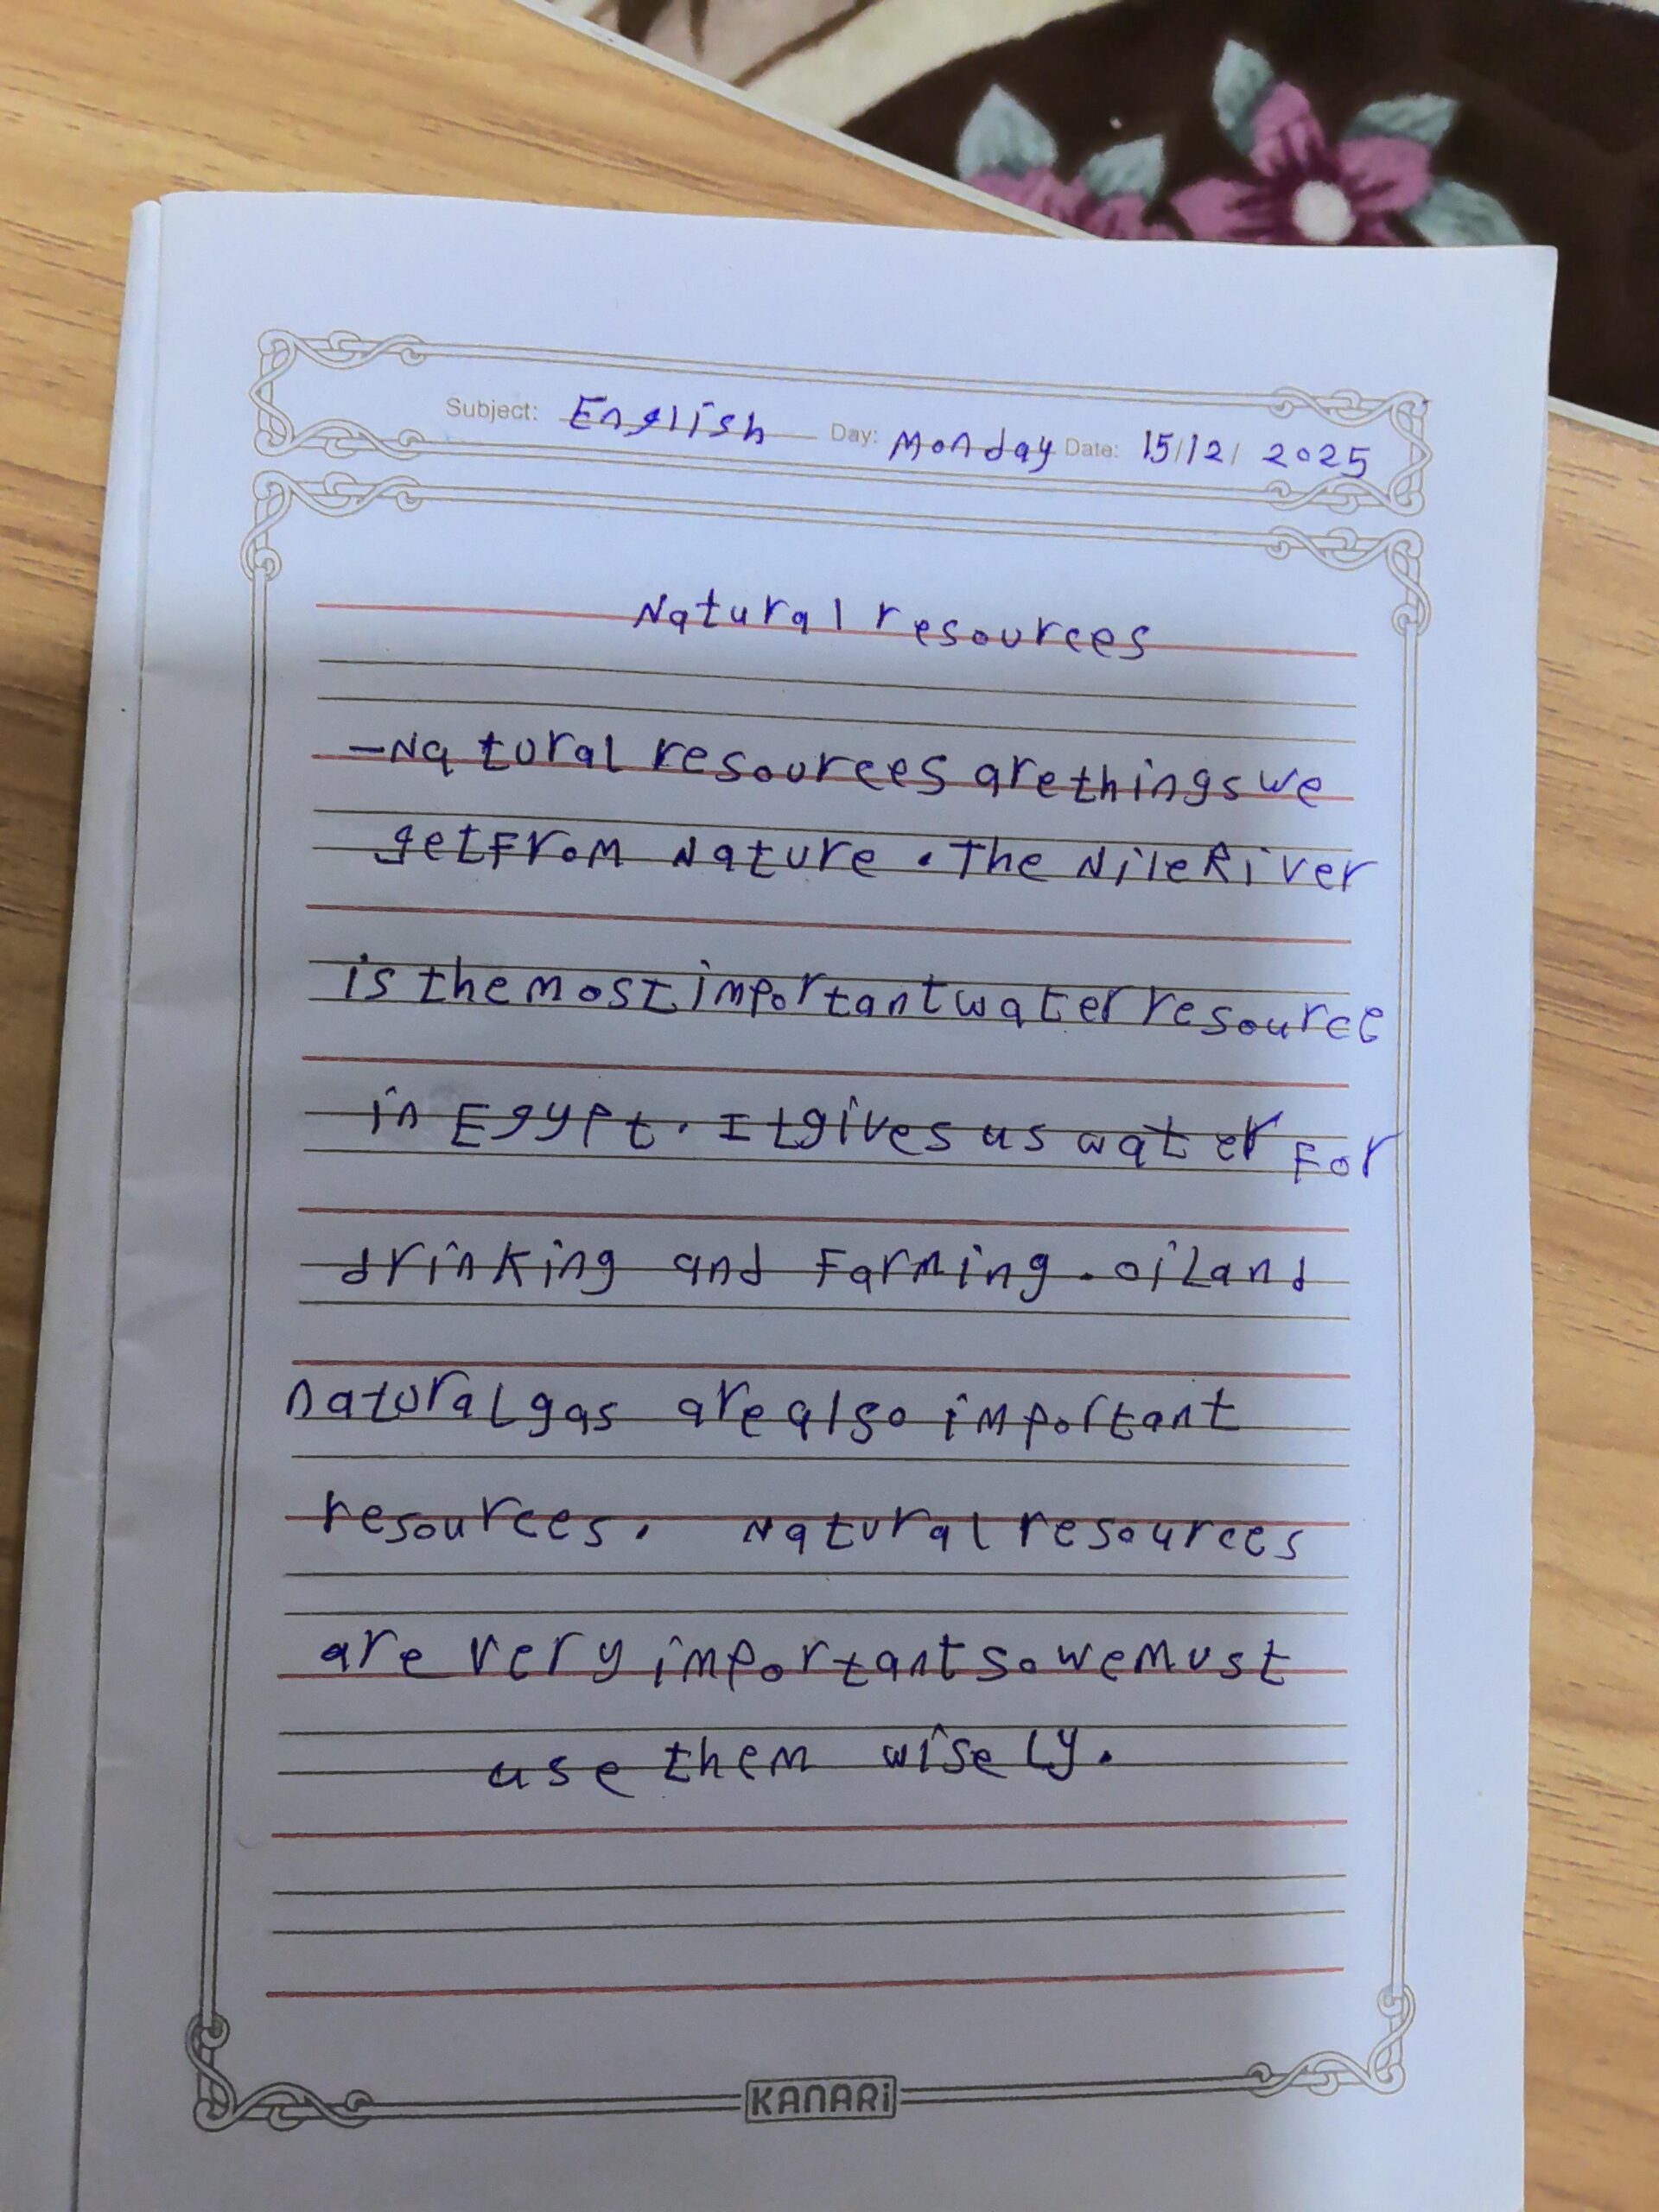 Subject: English Day: Monday Date: 15/12/ 2025
Natural resources
-Natural resources are things we
get From Nature. The Nile River
is the most important water resource
in Egypt. It gives us water For
drinking and Farming. oil and
natural gas are also important
resources. Natural resources
are very important so we must
use them wisely.
KANARi